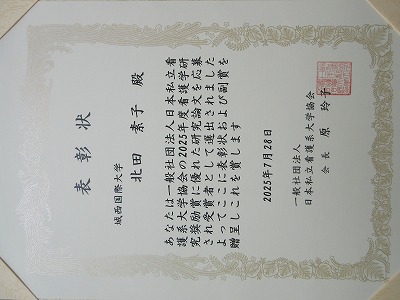 表彰状
城西国際大学
北田 素子 殿
あなたは一般社団法人日本私立看
護系大学協会の2025年度看護学研
究奨励賞に優れた研究論文を応募
され受賞者として選出されました
よってここに表彰状および副賞を
贈呈しこれを賞します
2025年7月28日
一般社団法人
日本私立看護系大学協会
会長 原 玲子